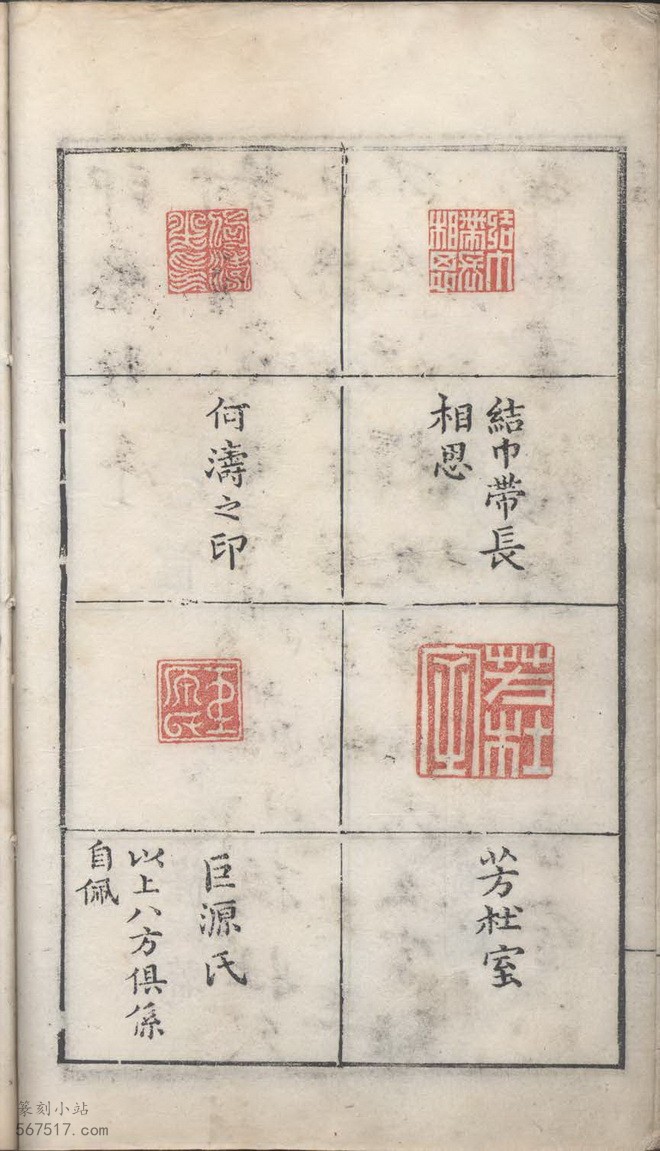 結巾帶長
相思
何濤之印
芳杜室
巨源氏
以上八方俱係
自佩
篆刻小站
567517.com